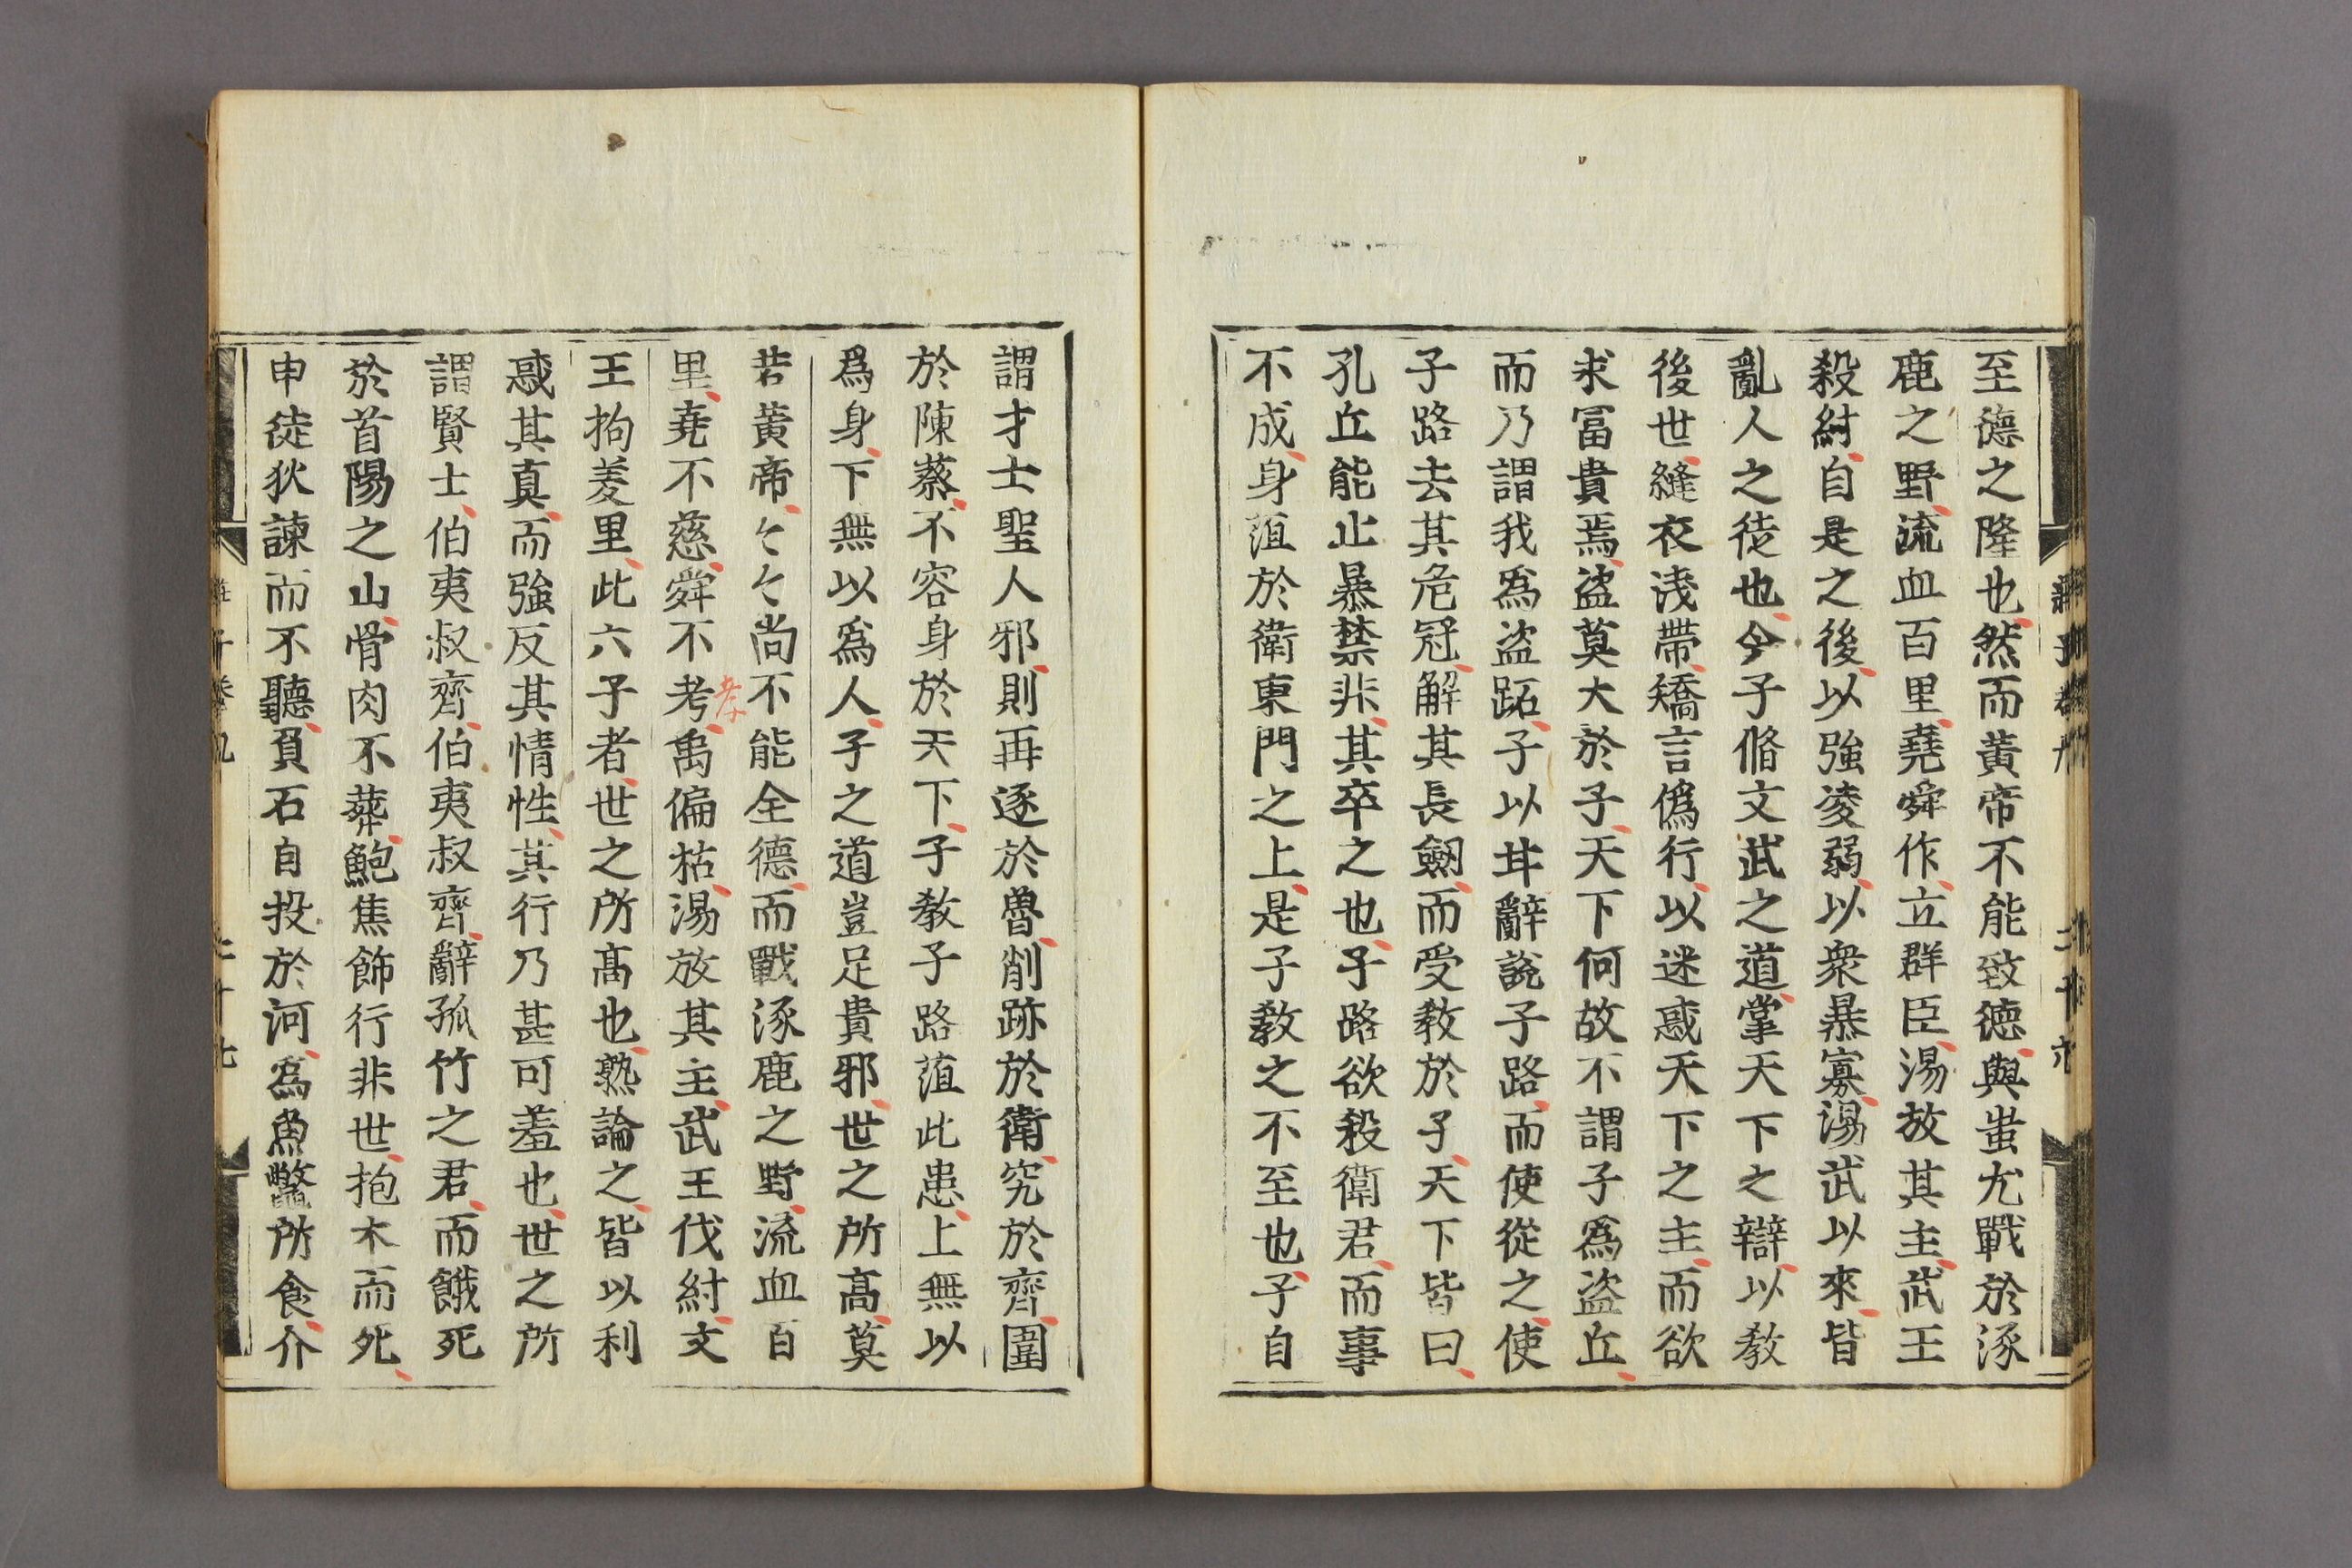 至德之隆也然而黃帝不能致德與蚩尤戰於涿
鹿之野流血百里堯舜作立群臣湯放其主武王
殺紂自是之後以強凌弱以衆暴寡湯武以來皆
亂人之徒也今子脩文武之道掌天下之辯以敎
後世縫衣淺帶矯言僞行以迷惑天下之主而欲
求冨貴焉盗莫大於子天下何故不謂子爲盗丘
而乃謂我爲盗跖子以甘辭說子路而使從之使
子路去其危冠解其長劒而受敎於子天下皆曰
孔丘能止暴禁非其卒之也子路欲殺衛君而事
不成身菹於衛東門之上是子敎之不至也子自
謂才士聖人邪則再逐於魯削跡於衛究於齊圍
於陳蔡不容身於天下子敎子路菹此患上無以
爲身下無以爲人子之道豈足貴邪世之所髙莫
若黄帝〻〻尚不能全德而戰涿鹿之野流血百
里堯不慈舜不考禹偏枯湯放其主武王伐紂文
孝
王拘羑里此六子者世之所髙也熟論之皆以利
惑其真而強反其情性其行乃甚可羞也世之所
謂賢士伯夷叔齊伯夷叔齊辭孤竹之君而餓死
於首陽之山骨肉不葬鮑焦飾行非世抱木而死
申徒狄諫而不聽負石自投於河爲魚鼈所食介
莊子卷九
二十七